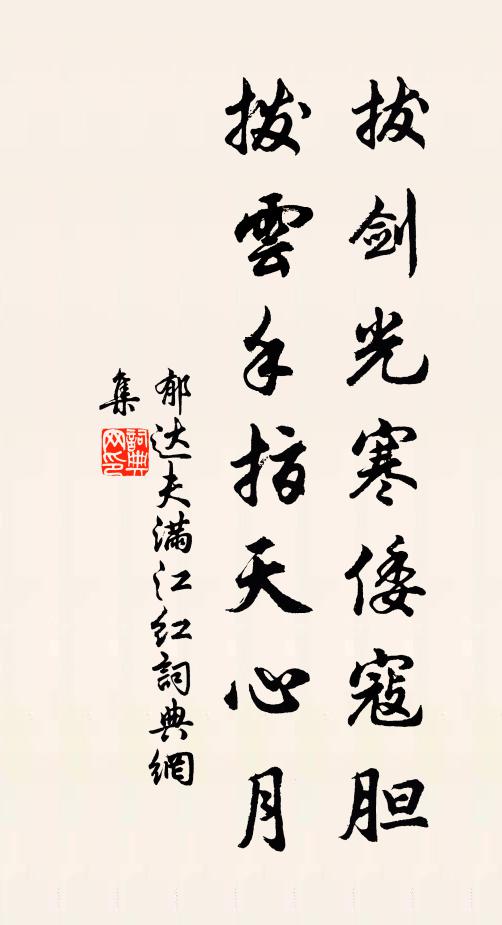 拔剑光寒倭寇胆
拨雲手指天心月
郁达夫满江红詞典網
集
詞典
网印